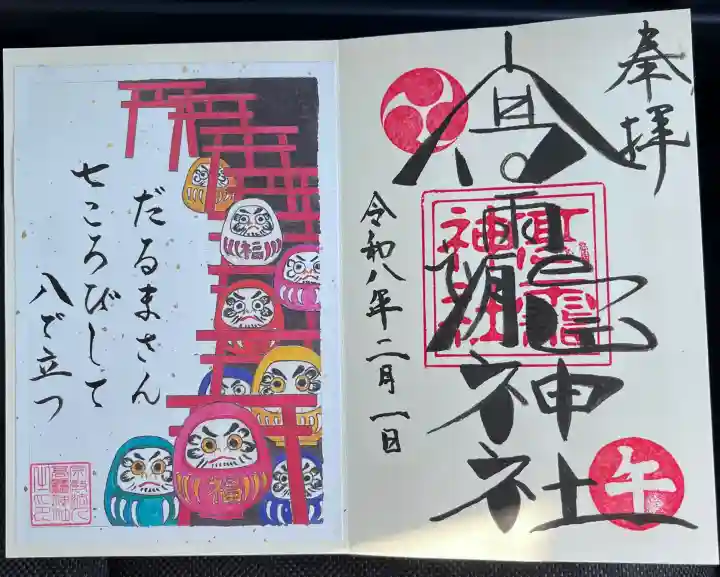 奉拝
高靇神社
令和八年二月一日
午
だるまさん
七ころびして
八で立つ
福
福